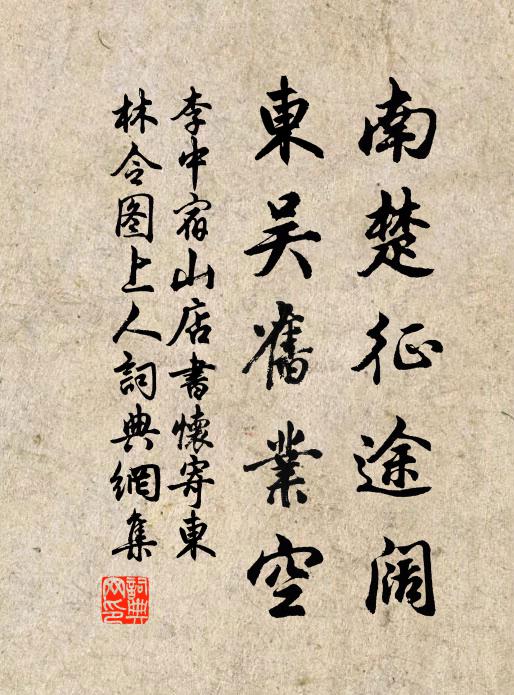 南楚征途阔
東吴舊業空
李中宿山店書懷寄東
林令图上人詞典網集
詞典网印